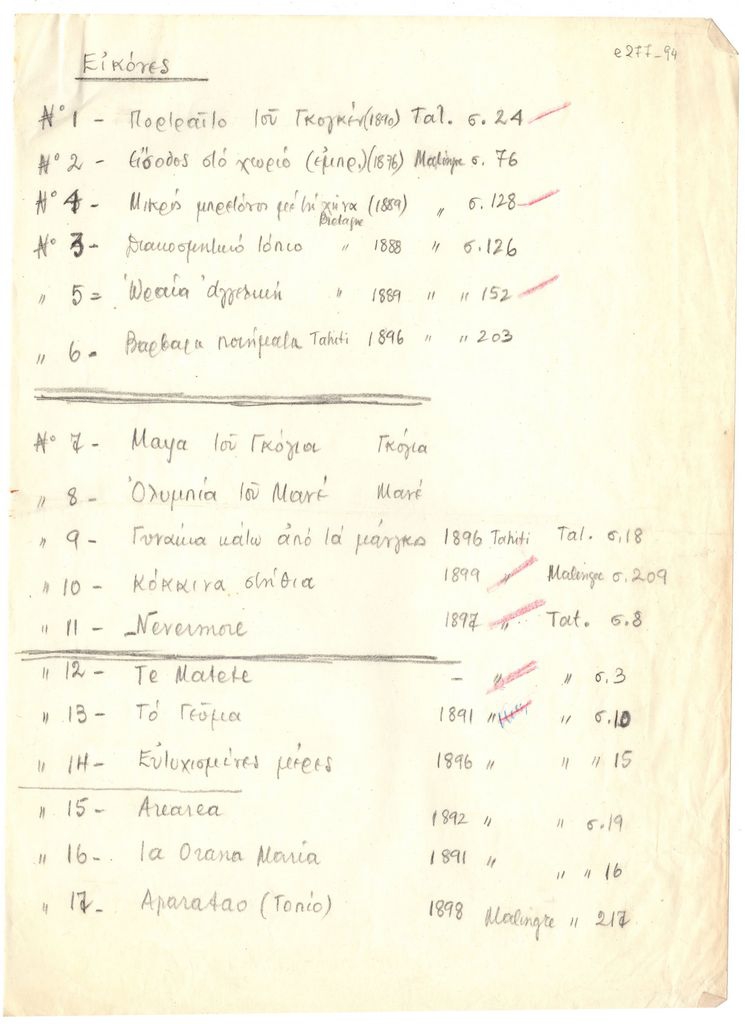 e277-94
Εἰκόνες
Nº 1 - Πορτραῖτο τοῦ Γκογκέν (1890) Tat. σ. 24
Nº 2 - Εἴσοδος στό χωριό (ἐμπρ.) (1876) Malingre σ. 76
Nº 4 - Μικρός μπρετόνος μέ τή χήνα (1889) " σ. 128
Bretagne
Nº 3 - Διακοσμητικό τόπιο " 1888 " σ. 126
" 5 = Ὡραία Ἀγγελική " 1889 " " 152
" 6 - Βαρβαρα ποιήματα Tahiti 1896 " " 203
Nº 7 - Μαγα τοῦ Γκόγια Γκόγια
" 8 - Ὀλυμπία τοῦ Μανέ Μανέ
" 9 - Γυναίκα κάτω ἀπό τά μάνγκος 1896 Tahiti Tat. σ. 18
" 10 - Κόκκινα στήθια 1899 " Malingre σ. 209
" 11 - Nevermore 1897 " Tat. σ. 8
" 12 - Te Matete - " " σ. 3
" 13 - Τό Γεῦμα 1891 " " σ. 10
" 14 - Εὐτυχισμένες μέρες 1896 " " " 15
" 15 - Arearea 1892 " " σ. 19
" 16 - Ia Orana Maria 1891 " " " 16
" 17 - Aparatao (Τοπίο) 1898 Malingre " 217